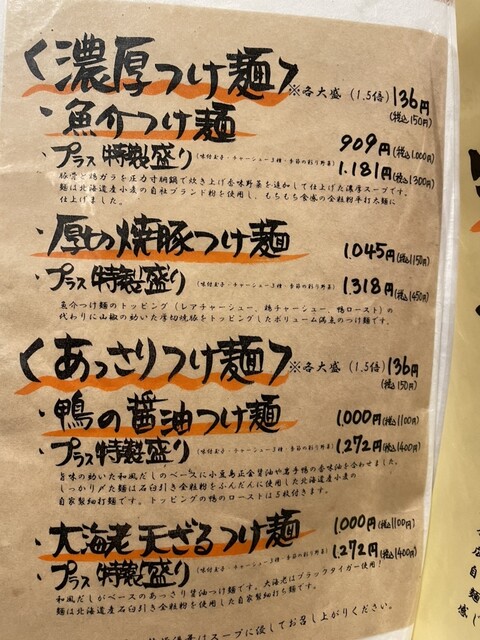 〈濃厚つけ麺〉 ※各大盛(1.5倍)136円(税込150円)
・魚介つけ麺 909円(税込1,000円)
・プラス特製盛り(味付玉子・チャーシュー3種・季節の彩り野菜)1,181円(税込1300円)
豚骨と鶏ガラを圧力寸胴鍋で炊き上げ香味野菜を追加して仕上げた濃厚スープです。
麺は北海道産小麦の自社ブランド粉を使用し、もちもち食感の全粒粉平打太麺に
仕上げました。
・厚切焼豚つけ麺 1,045円(税込1150円)
・プラス特製盛り(味付玉子・チャーシュー3種・季節の彩り野菜)1,318円(税込1450円)
魚介つけ麺のトッピング(レアチャーシュー、鶏チャーシュー、鴨ロースト)の
代わりに山椒の効いた厚切焼豚をトッピングしたボリューム満点のつけ麺です。
〈あっさりつけ麺〉 ※各大盛(1.5倍)136円(税込150円)
・鴨の醤油つけ麺 1,000円(税込1100円)
・プラス特製盛り(味付玉子・チャーシュー3種・季節の彩り野菜)1,272円(税込1400円)
旨味の効いた和風だしのベースに小豆島正金醤油や岩手鴨の香味油を合わせました。
しっかり〆た麺は石臼引き全粒粉をふんだんに使用した北海道産小麦の
自家製細打麺です。トッピングの鴨のローストは5枚付きます。
・大海老天ざるつけ麺 1,000円(税込1100円)
・プラス特製盛り(味付玉子・チャーシュー3種・季節の彩り野菜)1,272円(税込1400円)
和風だしがベースのあっさり醤油つけ麺です。大海老はブラックタイガー使用!
麺は北海道産石臼引き全粒粉を使用した自家製細打ち麺です。
はスープに浸してお召し上がりください。